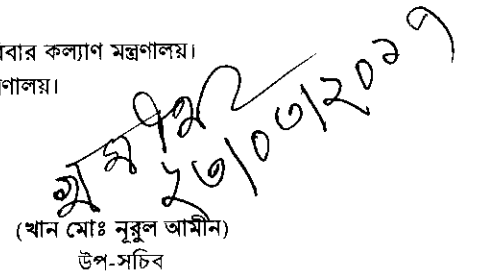 বার কল্যাণ মন্ত্রণালয়।
ণালয়।
২৩/০৩/২০১৭
(খান মোঃ নূরুল আমীন)
উপ-সচিব